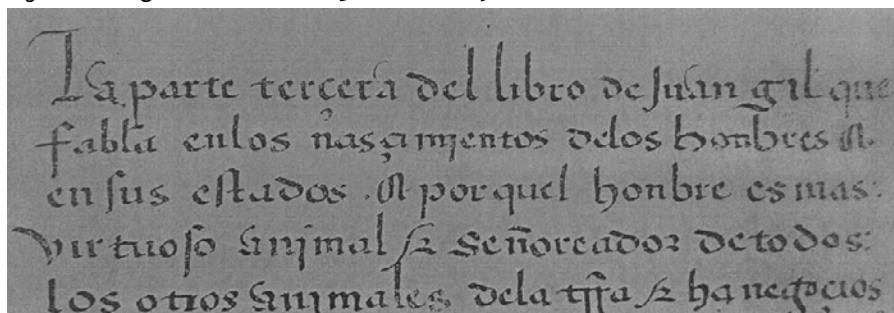 La parte terçera del libro de Juan gil que
fabla enlos nasçimjentos delos honbres &
en sus estados . & por quel honbre es mas
virtuoso anjmal & señoreador de todos
los otros anjmales dela trra & ha negoçios